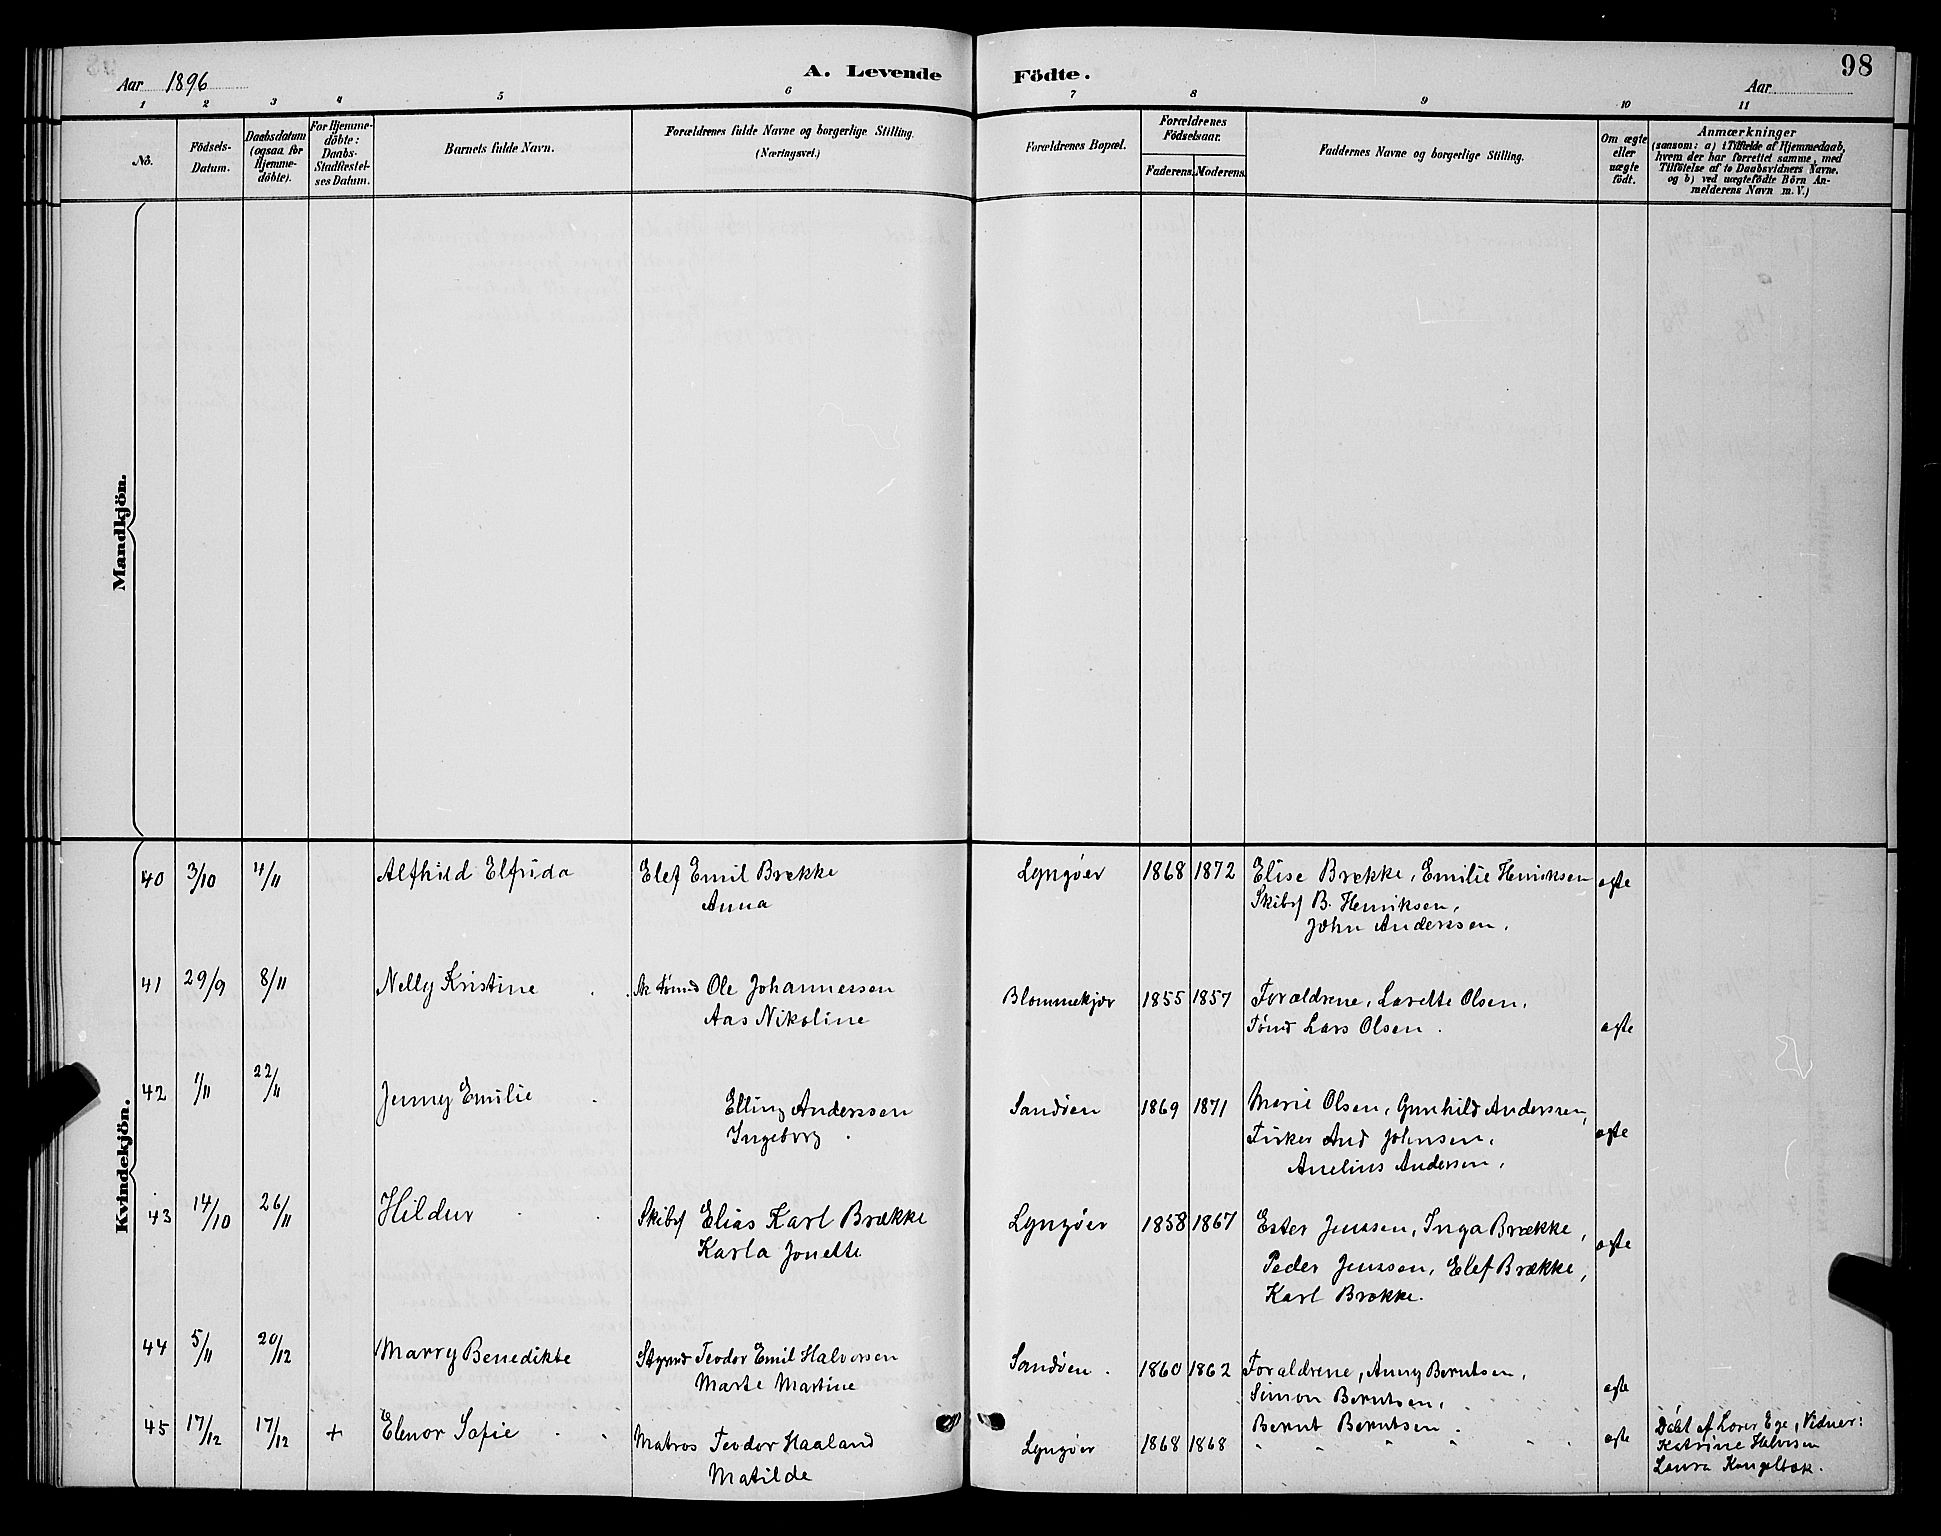 98
Aar 1896
A. Levende
Födte.
Aar
1 2 3 4 5 6 7 8 9 10 11
No.
Födsels-
Datum.
Daabsdatum
(ogsaa for
Hjemme-
döbte).
For Hjemme-
döbte:
Daabs-
Stadfæstel-
ses Datum.
Barnets fulde Navn.
Forældrenes fulde Navne og borgerlige Stilling.
(Næringsvei.)
Forældrenes Bopæl.
Forældrenes
Födselsaar.
Faderens.
Moderens.
Faddernes Navne og borgerlige Stilling.
Om ægte
eller
uægte
födt.
Anmærkninger
(saasom: a) i Tilfælde af Hjemmedaab,
hvem der har forrettet samme, med
Tilföielse af to Daabsvidners Navne,
og b) ved uægtefödte Börn An-
melderens Navn m. V.)
Mandkjön.
Kvindekjön.
40 3/10 4/11 Alfhild Elfrida Elef Emil Brekke Lyngøer 1868 1872 Elise Brekke, Emilie Henriksen ægte
Anna Skibsf B. Henriksen,
John Anderssen.
41 29/9 8/11 Nelly Kristine Ole Johannessen Blommekjær 1855 1857 Forældrene, Lavette Olsen,
Aas Nikoline Tømd Lars Olsen. ægte
42 1/11 22/11 Jenny Emilie Elling Anderssen Sandøen 1869 1871 Marie Olsen, Gunhild Anderssen,
Ingeborg Fisker And Johnsen, ægte
Anelius Andersen,
43 14/10 26/11 Hildur Skibsf Elias Karl Brække Lyngøer 1858 1867 Ester Jenssen, Inga Brække, ægte
Karla Jonette Peder Jenssen, Elef Brække,
Karl Brække.
44 5/11 20/12 Marry Benedikte Styrmd Teodor Emil Halvorsen Sandøen. 1860 1862 Forældrene, Anny Berntsen,
Marte Martine Simon Berntsen, ægte
Bernt Berntsen.
45 17/12 17/12 + Elenor Sofie Matros Teodor Haaland Lyngøer 1868 1868 " " " " " " ægte Døbt af Lærer Ege, Vidner:
Matilde Katrine Halvorsen
Laura Kongelbæk.